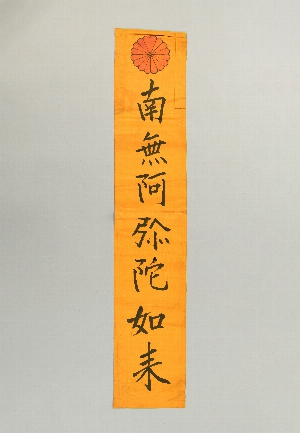 南無阿弥陀如来